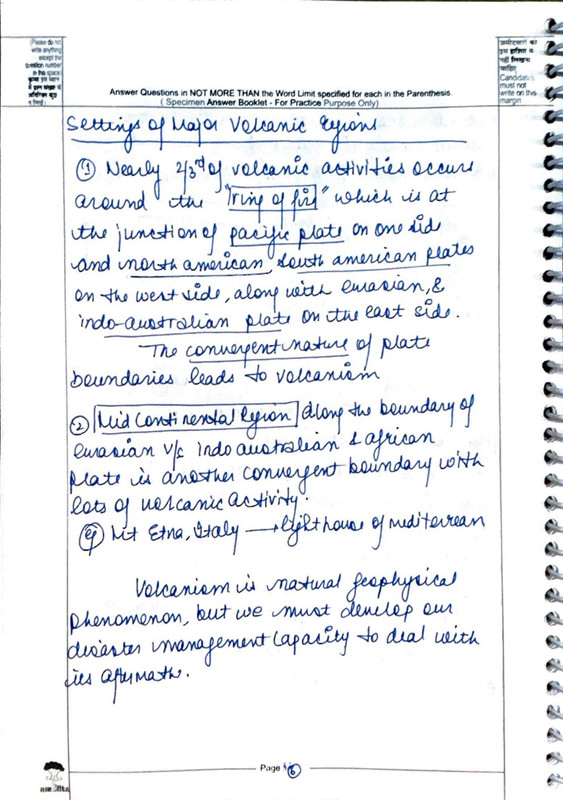 Please do not
write anything
except the
question number
in this space
कृपया इस स्थान
में प्रश्न संख्या के
अतिरिक्त कुछ
न लिखें।
उम्मीदवारों को
इस हाशिए में
नहीं लिखना
चाहिए
Candidates
must not
write on this
margin
Answer Questions in NOT MORE THAN the Word Limit specified for each in the Parenthesis.
( Specimen Answer Booklet - For Practice Purpose Only)
Settings of Major Volcanic Regions
① Nearly 2/3rd of volcanic activities occurs
around the "ring of fire" which is at
the junction of pacific plate on one side
and north american, south american plates
on the west side, along with eurasian, &
indo-australian plate on the east side.
The convergent nature of plate
boundaries leads to volcanism
② Mid Continental Region along the boundary of
eurasian v/s indo australian & african
plate is another convergent boundary with
lots of volcanic activity.
eg Mt Etna, Italy → light house of mediterrean
Volcanism is natural geophysical
phenomenon, but we must develop our
disaster management capacity to deal with
its aftermath.
Page 6